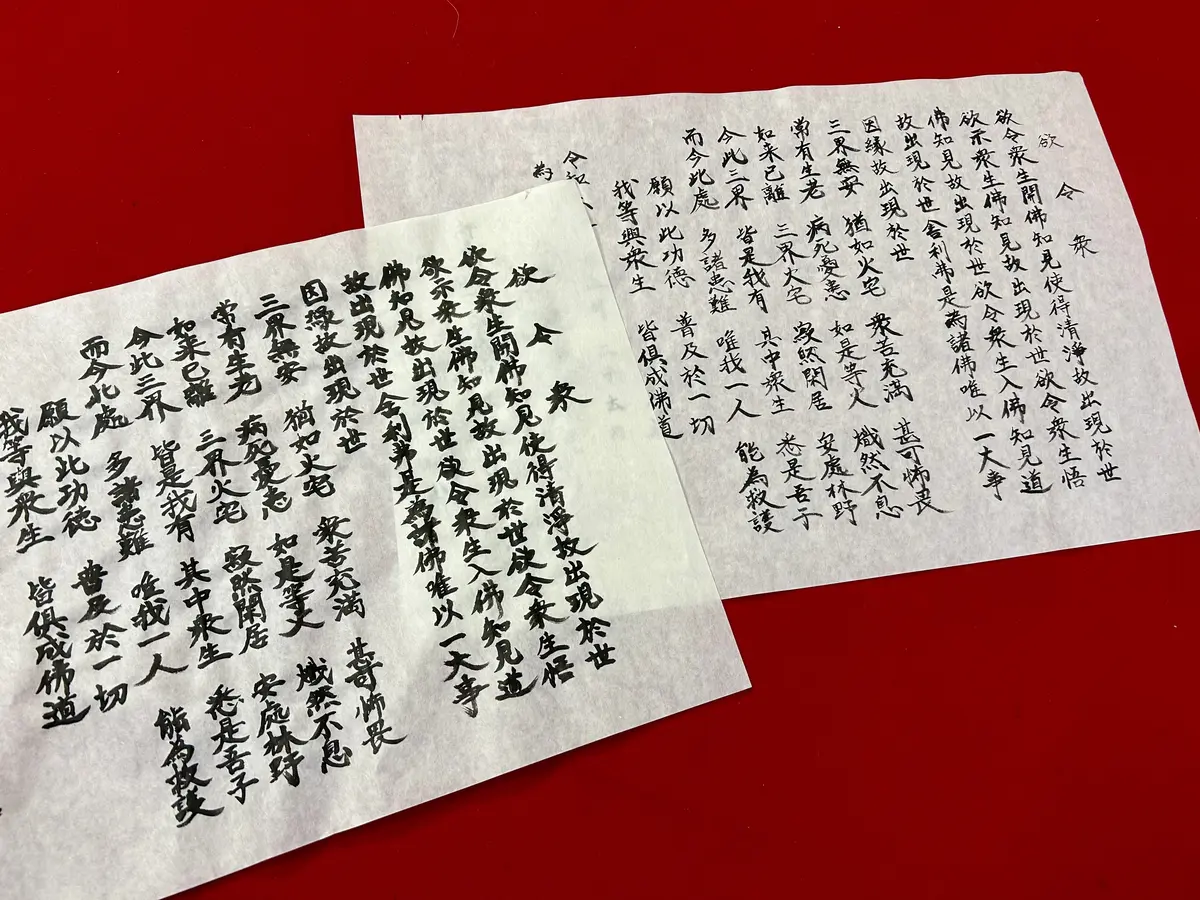 欲 令 衆
欲令衆生開佛知見使得清淨故出現於世
欲示衆生佛知見故出現於世欲令衆生悟
佛知見故出現於世欲令衆生入佛知見道
故出現於世舎利弗是為諸佛唯以一大事
因縁故出現於世
三界無安 猶如火宅 衆苦充満 甚可怖畏
常有生老 病死憂患 如是等火 熾然不息
如来已離 三界火宅 寂然閑居 安處林野
今此三界 皆是我有 其中衆生 悉是吾子
而今此處 多諸患難 唯我一人 能為救護
願以此功徳 普及於一切
我等與衆生 皆俱成佛道
令和
為
欲 令 衆
欲令衆生開佛知見使得清淨故出現於世
欲示衆生佛知見故出現於世欲令衆生悟
佛知見故出現於世欲令衆生入佛知見道
故出現於世舎利弗是為諸佛唯以一大事
因縁故出現於世
三界無安 猶如火宅 衆苦充満 甚可怖畏
常有生老 病死憂患 如是等火 熾然不息
如来已離 三界火宅 寂然閑居 安處林野
今此三界 皆是我有 其中衆生 悉是吾子
而今此處 多諸患難 唯我一人 能為救護
願以此功徳 普及於一切
我等與衆生 皆俱成佛道